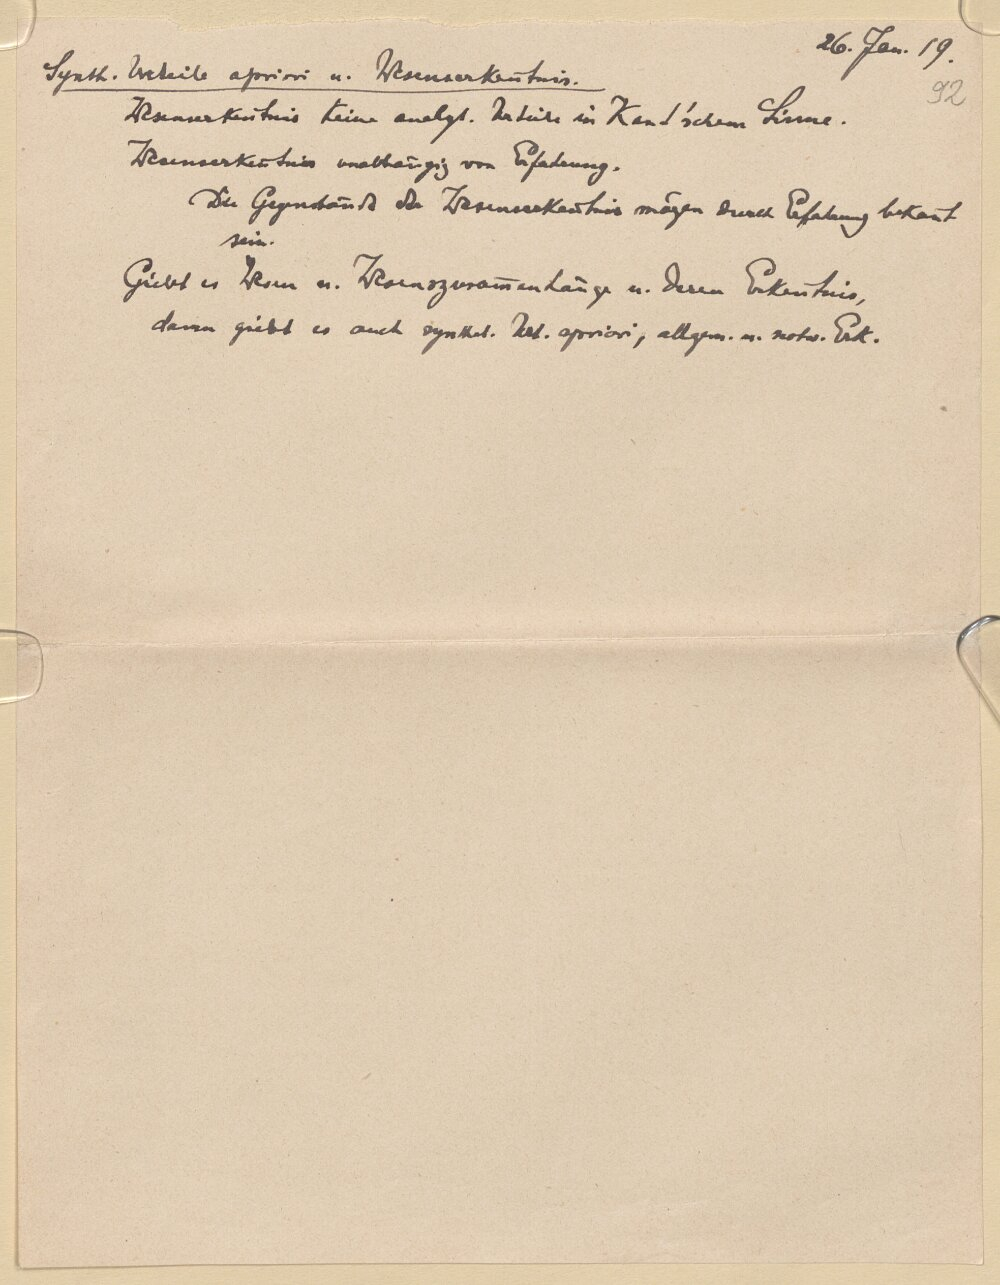 26. Jan. 19.
92
Synth. Urteile apriori u. Wesenserkentnis.
Wesenserkentnis keine analyt. Urteile in Kant'schem Sinne.
Wesenserkentnis unabhängig von Erfahrung.
Die Gegenstände der Wesenserkentnis mögen durch Erfahrung bekant
sein.
Giebt es Wesen u. Wesenszusamenhänge u. deren Erkentnis,
dann giebt es auch synthet. Urt. apriori, allgem. u. notw. Erk.